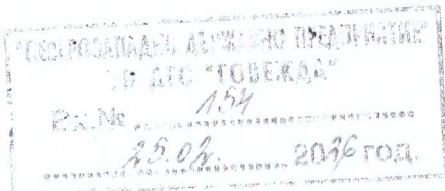 "СЕВЕРОЗАПАДНО ДЪРЖАВНО ПРЕДПРИЯТИЕ"
ТП ДГС "ГОВЕЖДА"
Вх.№ 154
23.02. 2016 год.